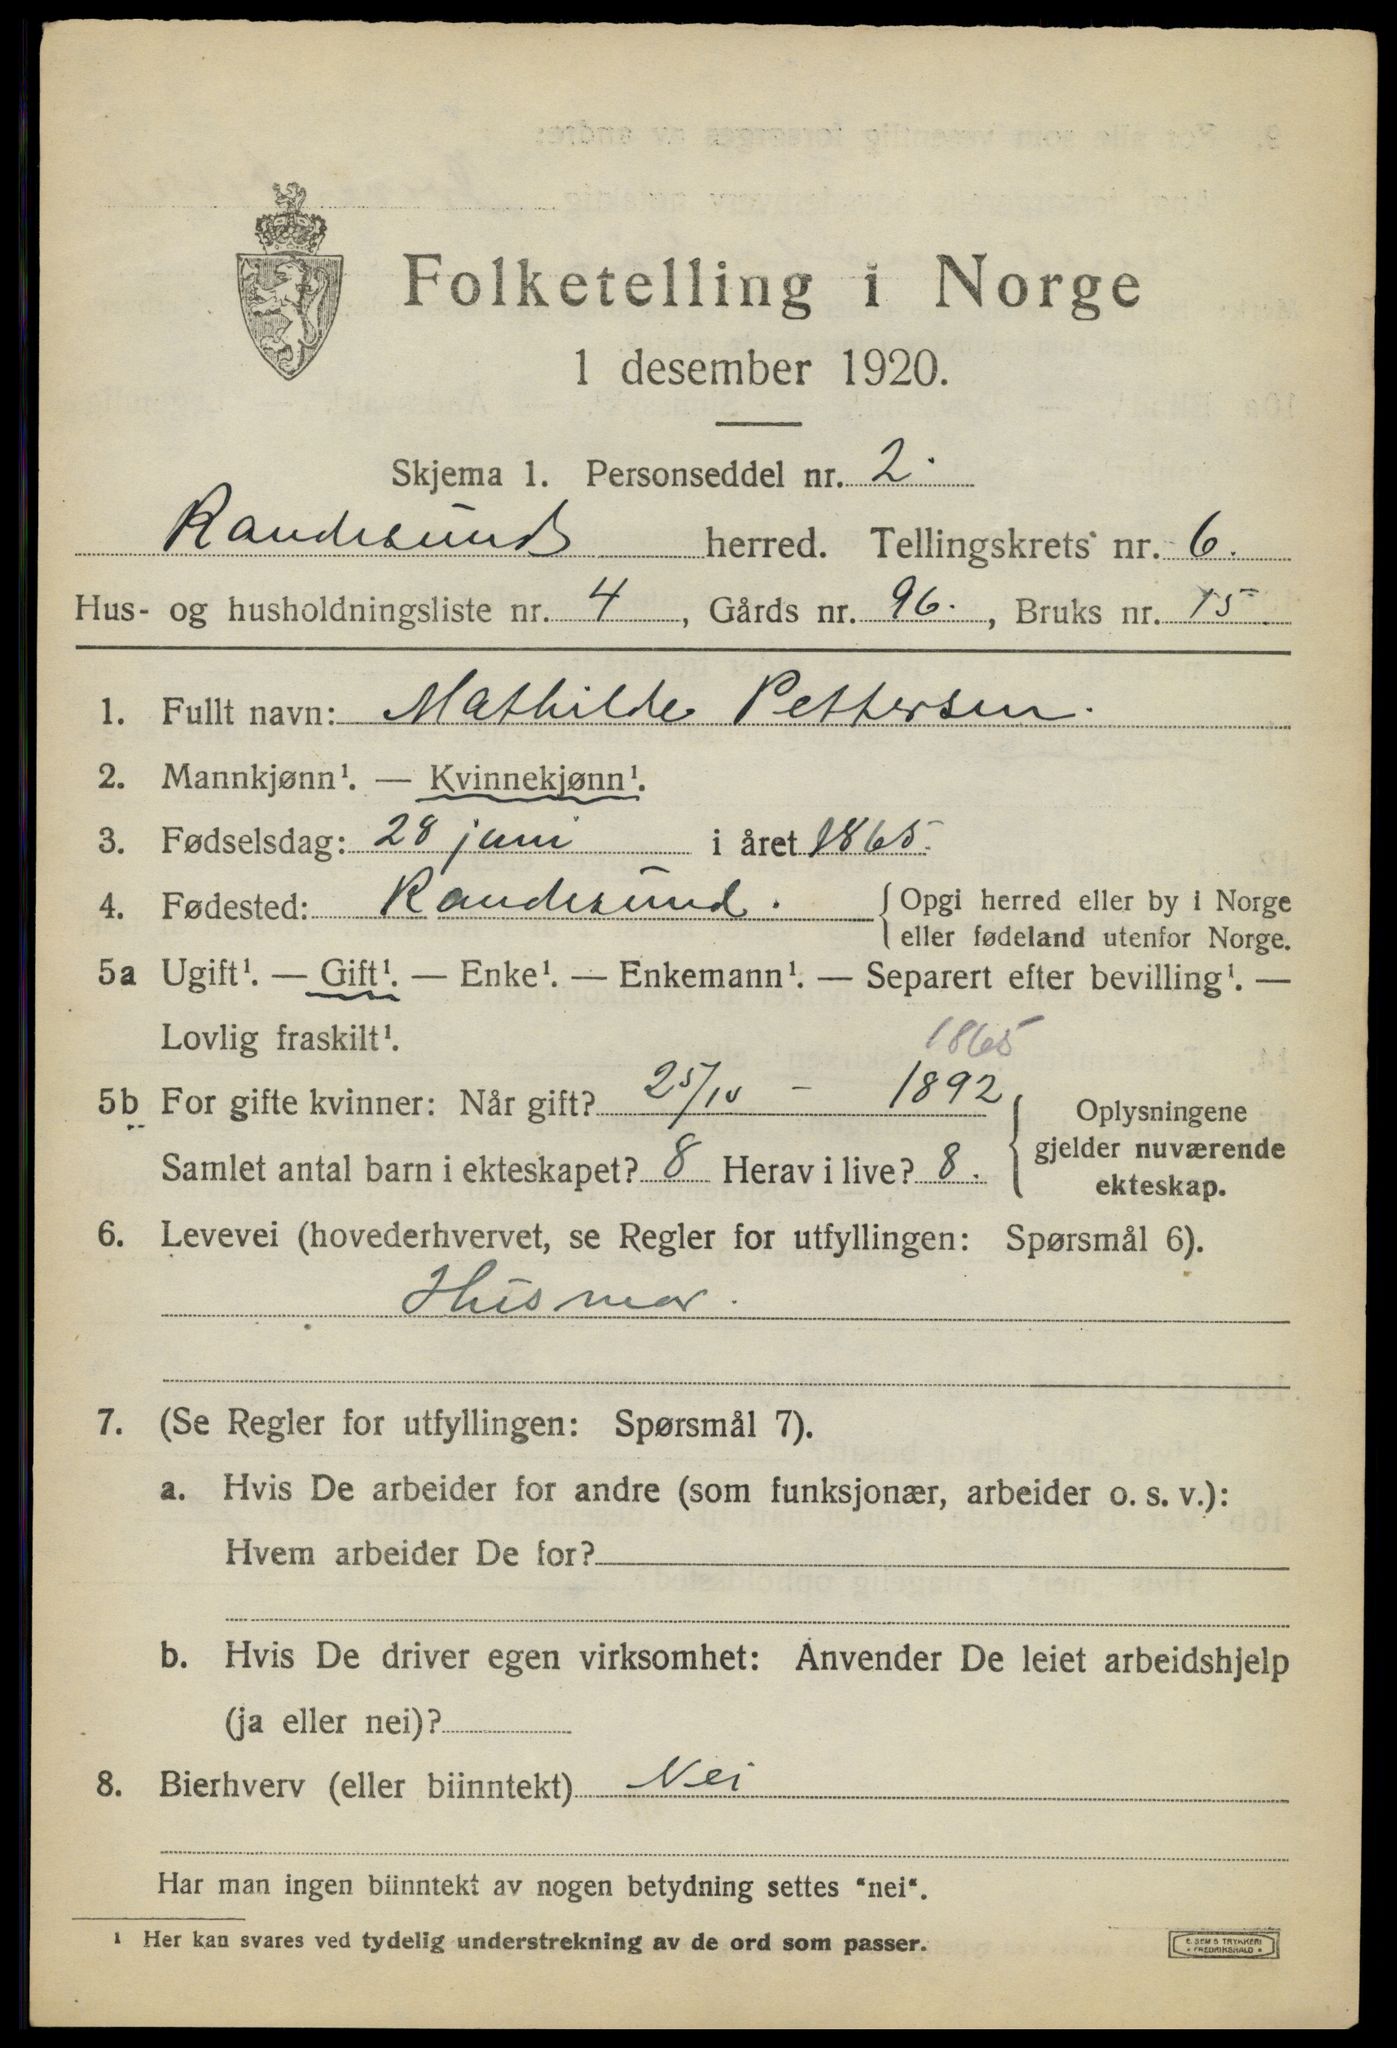 Folketelling i Norge
1 desember 1920.
Skjema 1. Personseddel nr. 2.
Randesund herred. Tellingskrets nr. 6.
Hus- og husholdningsliste nr. 4, Gårds nr. 96., Bruks nr. 15
1. Fullt navn: Mathilde Pettersen.
2. Mannkjønn¹. — Kvinnekjønn¹.
3. Fødselsdag: 28 juni i året 1865.
4. Fødested: Randesund. { Opgi herred eller by i Norge
eller fødeland utenfor Norge.
5a Ugift¹. — Gift¹. — Enke¹. — Enkemann¹. — Separert efter bevilling¹. —
Lovlig fraskilt¹.
1865
5b For gifte kvinner: Når gift? 25/10 - 1892
Samlet antal barn i ekteskapet? 8 Herav i live? 8.
{ Oplysningene
gjelder nuværende
ekteskap.
6. Levevei (hovederhvervet, se Regler for utfyllingen: Spørsmål 6).
Husmor.
7. (Se Regler for utfyllingen: Spørsmål 7).
a. Hvis De arbeider for andre (som funksjonær, arbeider o. s. v.):
Hvem arbeider De for?
b. Hvis De driver egen virksomhet: Anvender De leiet arbeidshjelp
(ja eller nei)?
8. Bierhverv (eller biinntekt) Nei
Har man ingen biinntekt av nogen betydning settes "nei".
¹ Her kan svares ved tydelig understrekning av de ord som passer.
E. SEM'S TRYKKERI
• FREDRIKSHALD •